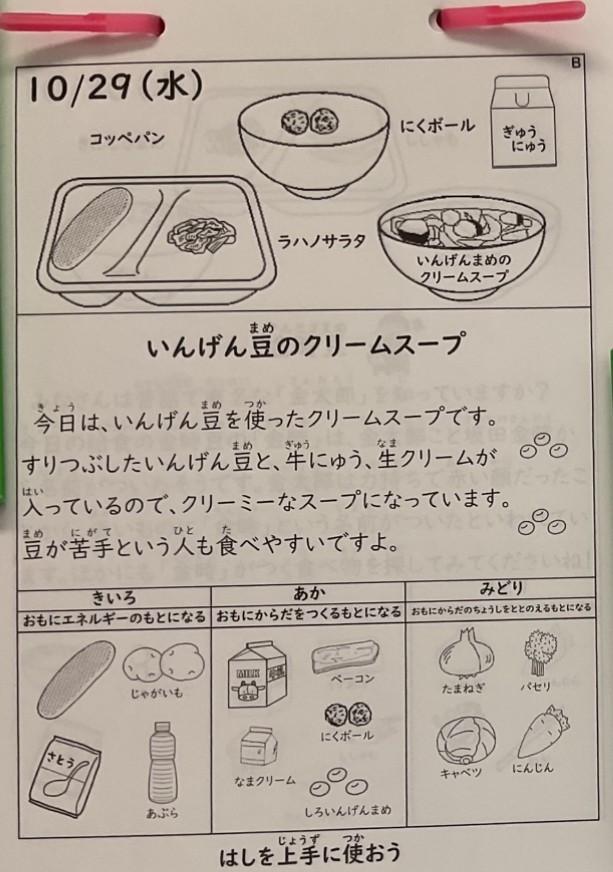 B
10/29(水)
コッペパン
にくボール
ぎゅう
にゅう
ラハノサラタ
いんげんまめの
クリームスープ
いんげん豆のクリームスープ
今日は、いんげん豆を使ったクリームスープです。
すりつぶしたいんげん豆と、牛にゅう、生クリームが
入っているので、クリーミーなスープになっています。
豆が苦手という人も食べやすいですよ。
きいろ
おもにエネルギーのもとになる
じゃがいも
さとう
あぶら
あか
おもにからだをつくるもとになる
MILK
ベーコン
にくボール
なまクリーム
しろいんげんまめ
みどり
おもにからだのちょうしをととのえるもとになる
たまねぎ
パセリ
キャベツ
にんじん
はしを上手に使おう